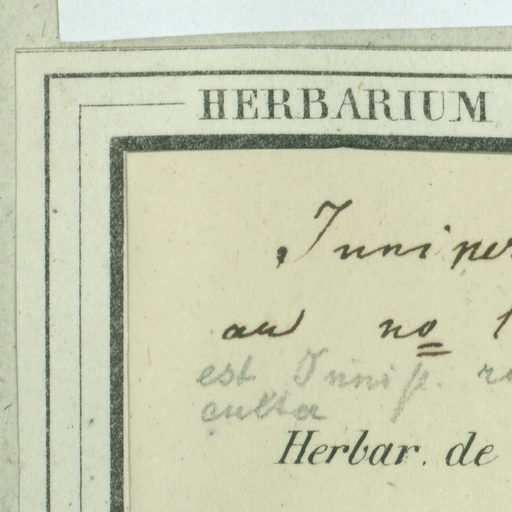 HERBARIUM
Juniper
au no
est Junip.
culta
Herbar. de